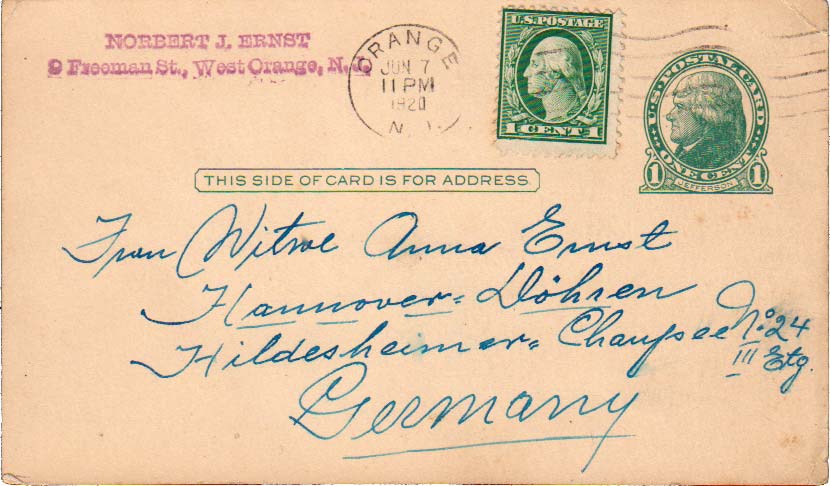 NORBERT J. ERNST
9 Freeman St., West Orange, N. J.
ORANGE
JUN 7
11 PM
1920
N. J.
U.S. POSTAGE
1 CENT 1
U.S. POSTAL CARD
1 ONE CENT 1
JEFFERSON
THIS SIDE OF CARD IS FOR ADDRESS
Frau Witwe Anna Ernst
Hannover=Döhren
Hildesheimer= Chaußee No. 24
III Etg.
Germany